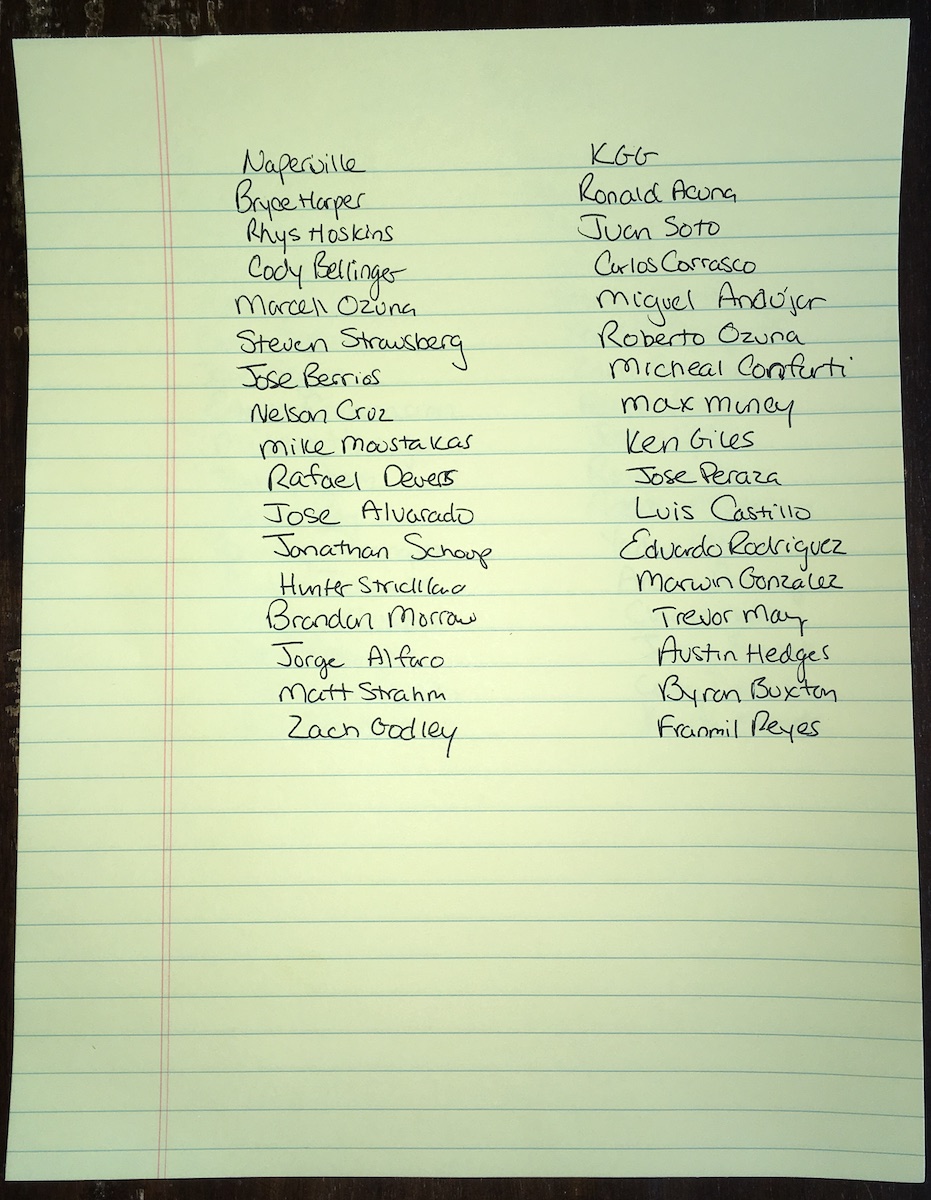 Naperville
Bryce Harper
Rhys Hoskins
Cody Bellinger
Marcell Ozuna
Steven Strausberg
Jose Berrios
Nelson Cruz
Mike Moustakas
Rafael Devers
Jose Alvarado
Jonathan Schoop
Hunter Strickland
Brandon Morrow
Jorge Alfaro
Matt Strahm
Zach Godley
KGG
Ronald Acuna
Juan Soto
Carlos Carrasco
Miguel Andújar
Roberto Ozuna
Micheal Confurti
Max Muncy
Ken Giles
Jose Peraza
Luis Castillo
Eduardo Rodriguez
Marwin Gonzalez
Trevor May
Austin Hedges
Byron Buxton
Franmil Reyes